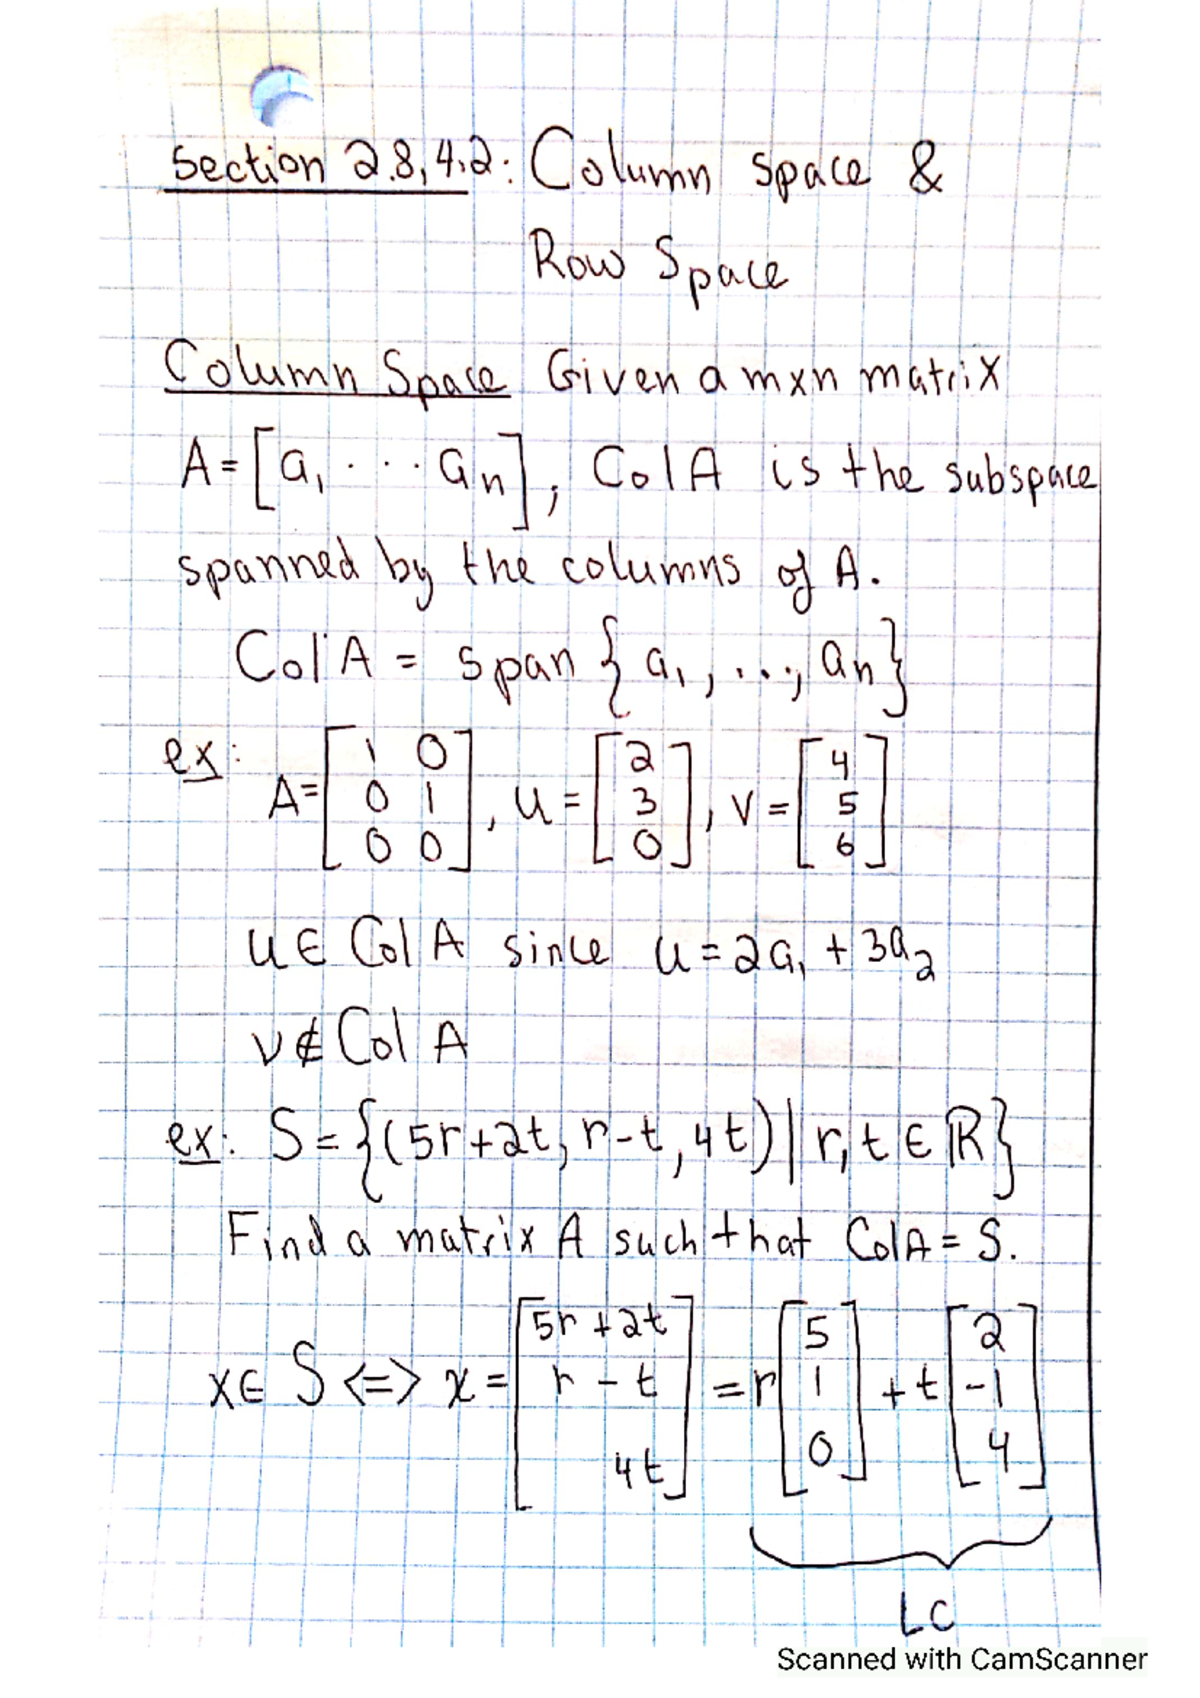 Section 2.8, 4.2: Column Space &
Row Space
Column Space Given a mxn matrix
A = [a₁ ... aₙ], Col A is the subspace
spanned by the columns of A.
Col A = span {a₁, ..., aₙ}
ex: A = [1 0; 0 1; 0 0], u = [2; 3; 0], v = [4; 5; 6]
u ∈ Col A since u = 2a₁ + 3a₂
v ∉ Col A
ex: S = {(5r+2t, r-t, 4t) | r, t ∈ ℝ}
Find a matrix A such that Col A = S.
x ∈ S <=> x = [5r + 2t; r - t; 4t] = r [5; 1; 0] + t [2; -1; 4]
LC
Scanned with CamScanner